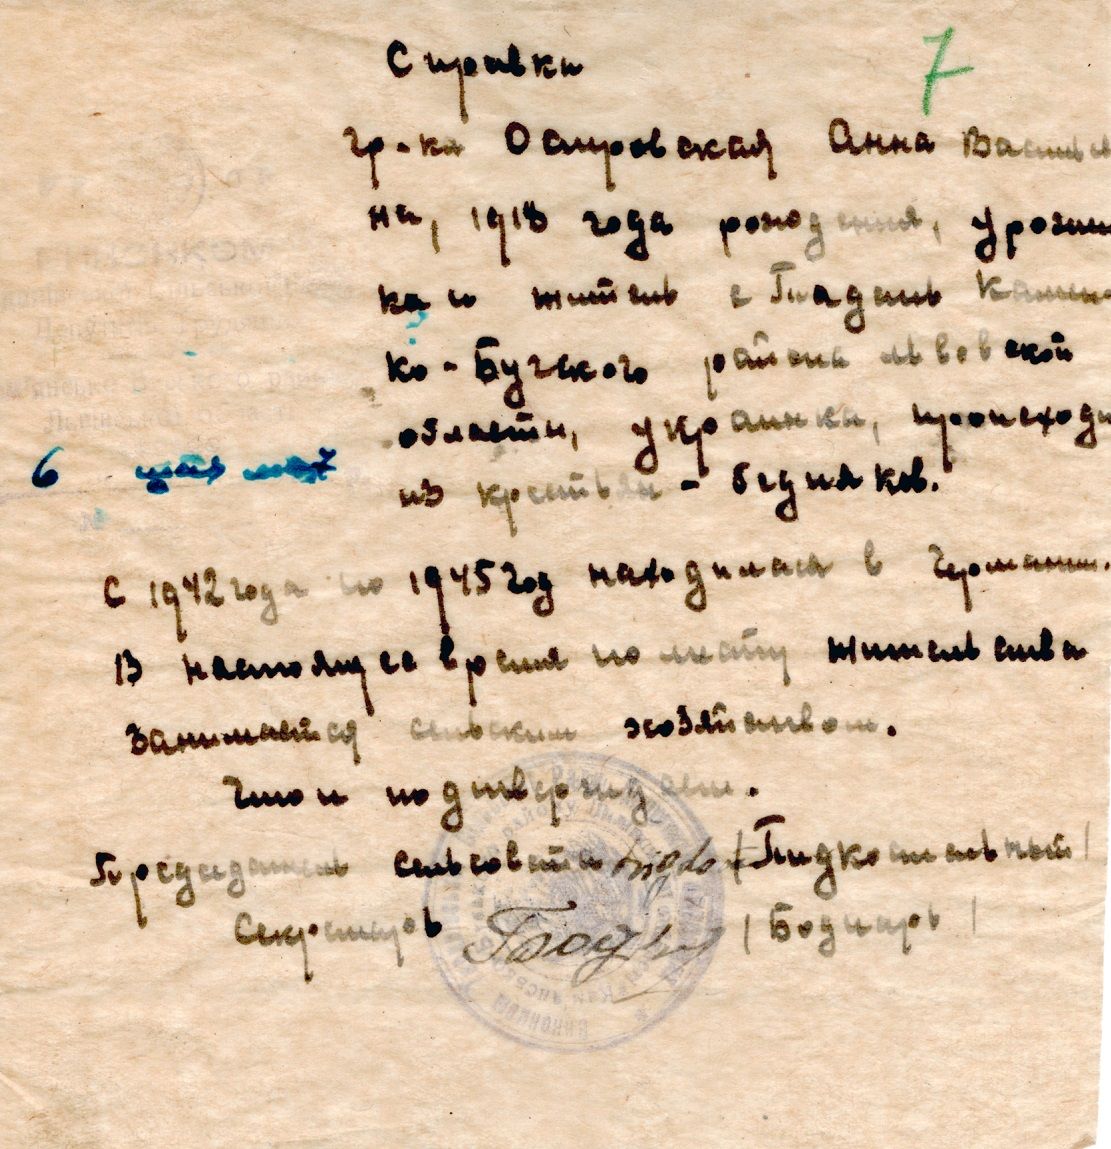 7
Справка
гр-ка Островская Анна Василье
на, 1918 года рождения, урожен
ка и житель с Гладень Камен
ко-Бугского района львовской
области, украинка, происходи
из крестьян - бедняков.
ВИКОНКОМ
6
С 1942 года по 1945 год находилась в Германии.
В настоящее время по месту жительства
занимается сельским хозяйством.
Что и подтверждает.
Председатель сельсовета /Пидкостельный/
Секретарь /Боднарь/